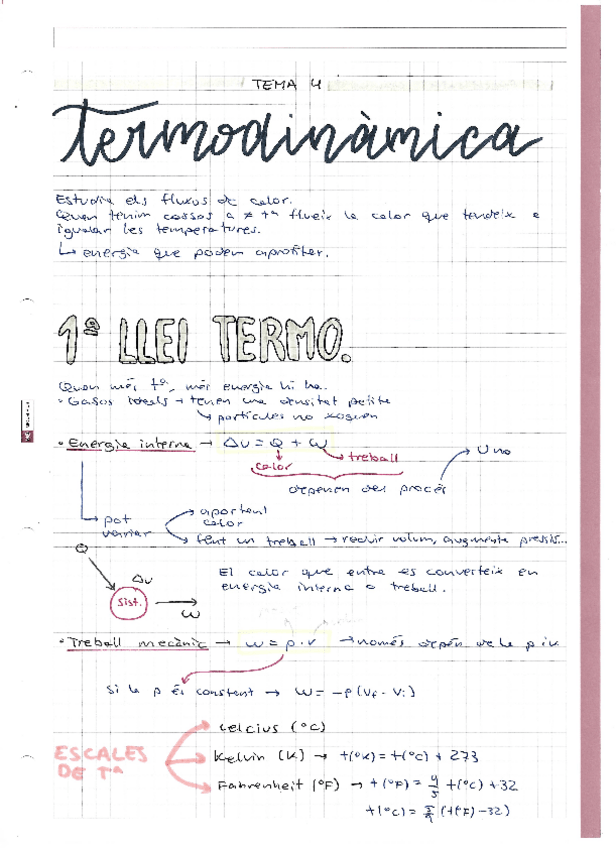 TEMA 4
termodinàmica
Estudia els fluxos de calor.
Quan tenim cossos a ≠ tª flueix la calor que tendeix a
igualar les temperatures.
↳ energia que podem aprofitar.
1ª LLEI TERMO.
Quan més tª, més energia hi ha.
· Gasos ideals → tenen una densitat petita
↳ partícules no xoquen
· Energia interna → Δu = Q + w
calor
treball
depenen del procés
U no
pot variar
aportant calor
fent un treball → reduir volum, augmenta pressió...
Q
Δu
Sist.
w
El calor que entra es converteix en
energia interna o treball.
· Treball mecànic → w = p · v → només depén de la p i v.
Si la p és constant → w = -p (Vf - Vi)
ESCALES DE Tª
Celcius (°C)
Kelvin (K) → t(°K) = t(°C) + 273
Fahrenheit (°F) → t(°F) = 9/5 t(°C) + 32
t(°C) = 5/9 (t(°F) - 32)